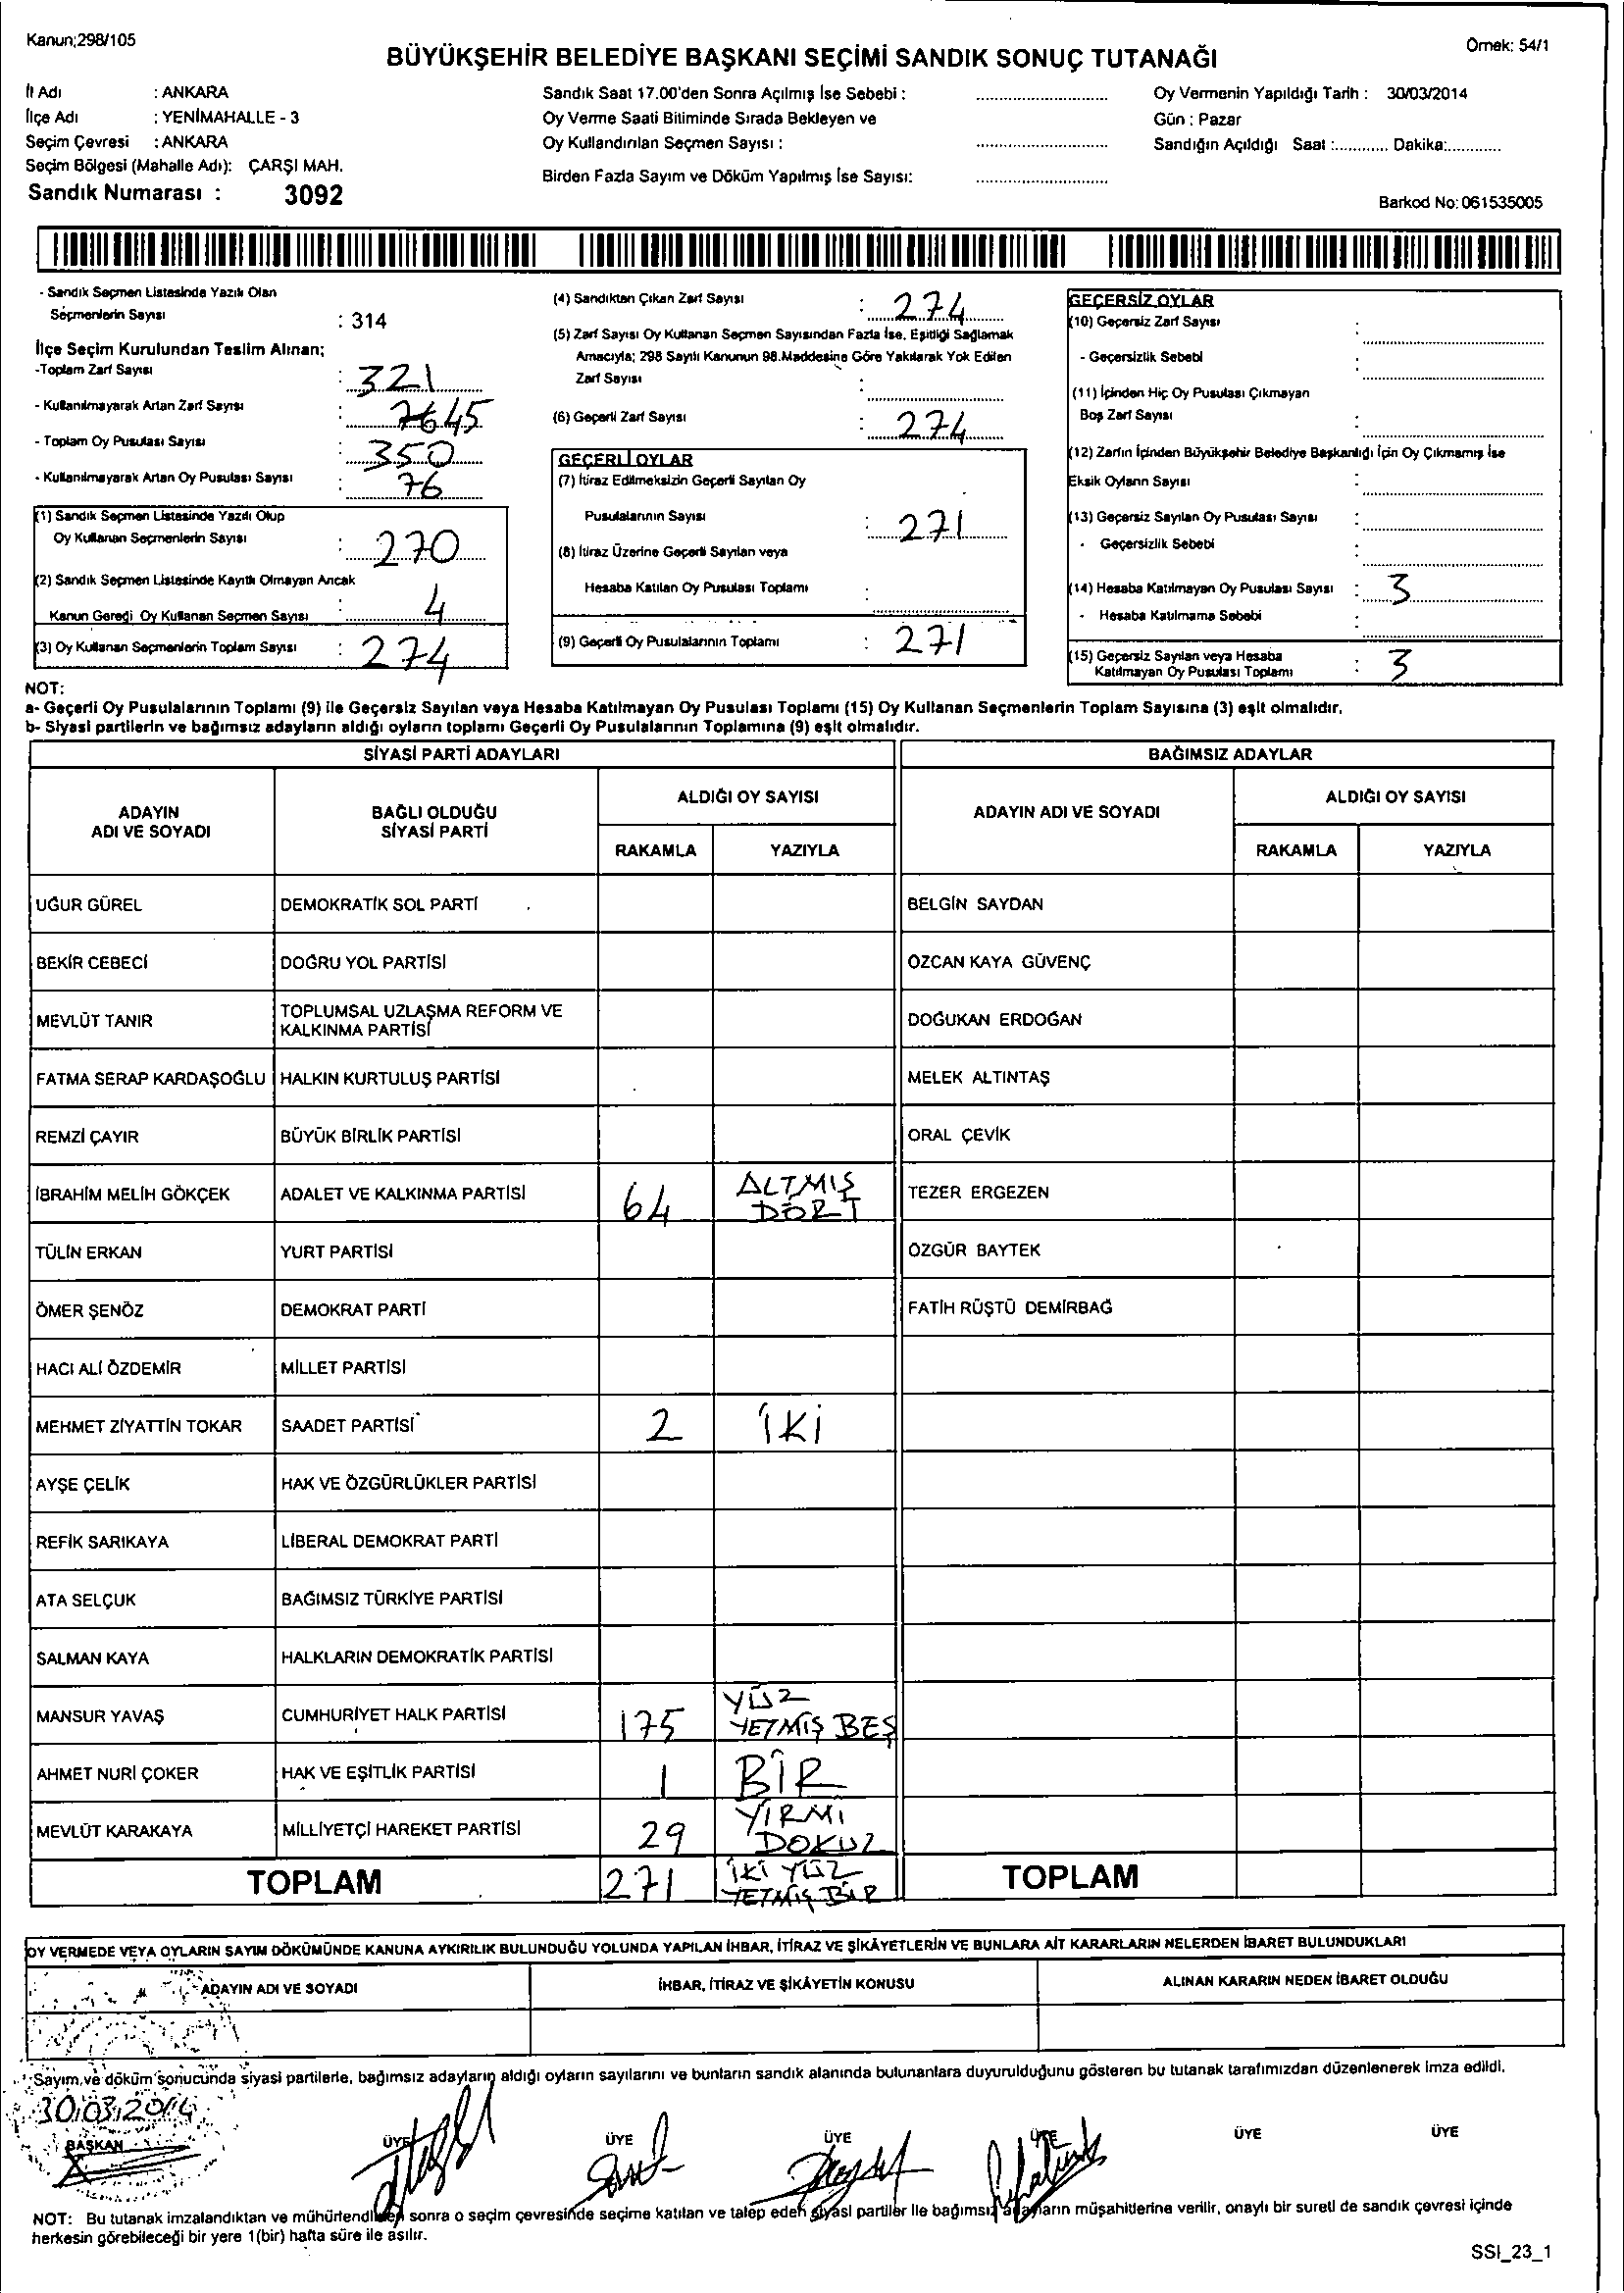 Kanun;298/105
Örnek: 54/1
BÜYÜKŞEHİR BELEDİYE BAŞKANI SEÇİMİ SANDIK SONUÇ TUTANAĞI
İl Adı : ANKARA
İlçe Adı : YENİMAHALLE - 3
Seçim Çevresi : ANKARA
Seçim Bölgesi (Mahalle Adı): ÇARŞI MAH.
Sandık Numarası : 3092
Sandık Saat 17.00'den Sonra Açılmış İse Sebebi :
Oy Verme Saati Bitiminde Sırada Bekleyen ve
Oy Kullandırılan Seçmen Sayısı :
Birden Fazla Sayım ve Döküm Yapılmış İse Sayısı:
Oy Vermenin Yapıldığı Tarih : 30/03/2014
Gün : Pazar
Sandığın Açıldığı Saat :............ Dakika:............
Barkod No: 061535005
- Sandık Seçmen Listesinde Yazılı Olan
Seçmenlerin Sayısı : 314
İlçe Seçim Kurulundan Teslim Alınan;
-Toplam Zarf Sayısı : 321
- Kullanılmayarak Artan Zarf Sayısı : 45
- Toplam Oy Pusulası Sayısı : 350
- Kullanılmayarak Artan Oy Pusulası Sayısı : 76
(1) Sandık Seçmen Listesinde Yazılı Olup
Oy Kullanan Seçmenlerin Sayısı : 270
(2) Sandık Seçmen Listesinde Kayıtlı Olmayan Ancak
Kanun Gereği Oy Kullanan Seçmen Sayısı : 4
(3) Oy Kullanan Seçmenlerin Toplam Sayısı : 274
(4) Sandıktan Çıkan Zarf Sayısı : 274
(5) Zarf Sayısı Oy Kullanan Seçmen Sayısından Fazla İse, Eşitliği Sağlamak
Amacıyla; 298 Sayılı Kanunun 98.Maddesine Göre Yakılarak Yok Edilen
Zarf Sayısı :
(6) Geçerli Zarf Sayısı : 274
GEÇERLİ OYLAR
(7) İtiraz Edilmeksizin Geçerli Sayılan Oy
Pusulalarının Sayısı : 271
(8) İtiraz Üzerine Geçerli Sayılan veya
Hesaba Katılan Oy Pusulası Toplamı :
(9) Geçerli Oy Pusulalarının Toplamı : 271
GEÇERSİZ OYLAR
(10) Geçersiz Zarf Sayısı :
- Geçersizlik Sebebi :
(11) İçinden Hiç Oy Pusulası Çıkmayan
Boş Zarf Sayısı :
(12) Zarfın İçinden Büyükşehir Belediye Başkanlığı İçin Oy Çıkmamış İse
Eksik Oyların Sayısı :
(13) Geçersiz Sayılan Oy Pusulası Sayısı :
- Geçersizlik Sebebi :
(14) Hesaba Katılmayan Oy Pusulası Sayısı : 3
- Hesaba Katılmama Sebebi :
(15) Geçersiz Sayılan veya Hesaba
Katılmayan Oy Pusulası Toplamı : 3
NOT:
a- Geçerli Oy Pusulalarının Toplamı (9) ile Geçersiz Sayılan veya Hesaba Katılmayan Oy Pusulası Toplamı (15) Oy Kullanan Seçmenlerin Toplam Sayısına (3) eşit olmalıdır.
b- Siyasi partilerin ve bağımsız adayların aldığı oyların toplamı Geçerli Oy Pusulalarının Toplamına (9) eşit olmalıdır.
SİYASİ PARTİ ADAYLARI BAĞIMSIZ ADAYLAR
ADAYIN ADI VE SOYADI BAĞLI OLDUĞU SİYASİ PARTİ ALDIĞI OY SAYISI ADAYIN ADI VE SOYADI ALDIĞI OY SAYISI
RAKAMLA YAZIYLA RAKAMLA YAZIYLA
UĞUR GÜREL DEMOKRATİK SOL PARTİ BELGİN SAYDAN
BEKİR CEBECİ DOĞRU YOL PARTİSİ ÖZCAN KAYA GÜVENÇ
MEVLÜT TANIR TOPLUMSAL UZLAŞMA REFORM VE KALKINMA PARTİSİ DOĞUKAN ERDOĞAN
FATMA SERAP KARDAŞOĞLU HALKIN KURTULUŞ PARTİSİ MELEK ALTINTAŞ
REMZİ ÇAYIR BÜYÜK BİRLİK PARTİSİ ORAL ÇEVİK
İBRAHİM MELİH GÖKÇEK ADALET VE KALKINMA PARTİSİ 64 ALTMIŞ DÖRT TEZER ERGEZEN
TÜLİN ERKAN YURT PARTİSİ ÖZGÜR BAYTEK
ÖMER ŞENÖZ DEMOKRAT PARTİ FATİH RÜŞTÜ DEMİRBAĞ
HACI ALİ ÖZDEMİR MİLLET PARTİSİ
MEHMET ZİYATTİN TOKAR SAADET PARTİSİ 2 İKİ
AYŞE ÇELİK HAK VE ÖZGÜRLÜKLER PARTİSİ
REFİK SARIKAYA LİBERAL DEMOKRAT PARTİ
ATA SELÇUK BAĞIMSIZ TÜRKİYE PARTİSİ
SALMAN KAYA HALKLARIN DEMOKRATİK PARTİSİ
MANSUR YAVAŞ CUMHURİYET HALK PARTİSİ 175 YÜZ YETMİŞ BEŞ
AHMET NURİ ÇOKER HAK VE EŞİTLİK PARTİSİ 1 BİR
MEVLÜT KARAKAYA MİLLİYETÇİ HAREKET PARTİSİ 29 YİRMİ DOKUZ
TOPLAM 271 İKİ YÜZ YETMİŞ BİR TOPLAM
OY VERMEDE VEYA OYLARIN SAYIM DÖKÜMÜNDE KANUNA AYKIRILIK BULUNDUĞU YOLUNDA YAPILAN İHBAR, İTİRAZ VE ŞİKÂYETLERİN VE BUNLARA AİT KARARLARIN NELERDEN İBARET BULUNDUKLARI
ADAYIN ADI VE SOYADI İHBAR, İTİRAZ VE ŞİKÂYETİN KONUSU ALINAN KARARIN NEDEN İBARET OLDUĞU
Sayım ve döküm sonucunda siyasi partilerle, bağımsız adayların aldığı oyların sayılarını ve bunların sandık alanında bulunanlara duyurulduğunu gösteren bu tutanak tarafımızdan düzenlenerek imza edildi.
30.03.2014
BAŞKAN ÜYE ÜYE ÜYE ÜYE ÜYE ÜYE
NOT: Bu tutanak imzalandıktan ve mühürlendikten sonra o seçim çevresinde seçime katılan ve talep eden siyasi partiler ile bağımsız adayların müşahitlerine verilir, onaylı bir sureti de sandık çevresi içinde
herkesin görebileceği bir yere 1(bir) hafta süre ile asılır.
SSI_23_1